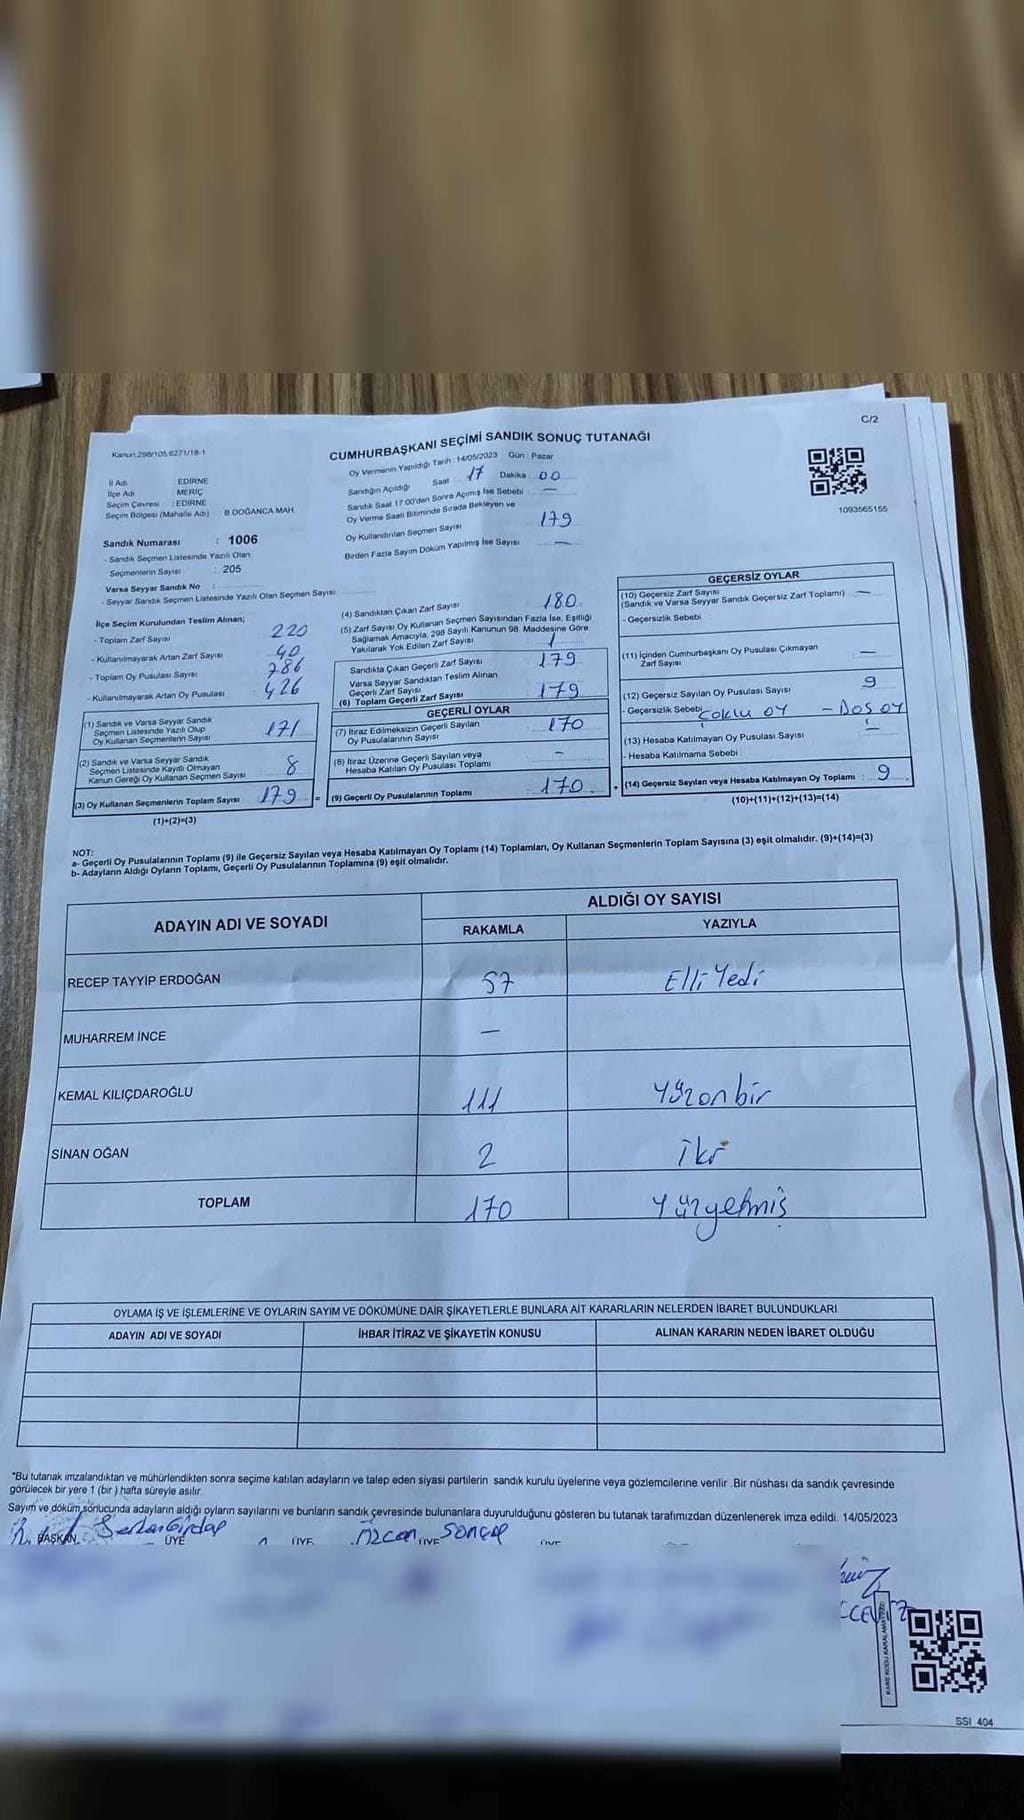 C/2
Kanun:298/105,6271/18-1
CUMHURBAŞKANI SEÇİMİ SANDIK SONUÇ TUTANAĞI
1093565155
İl Adı : EDİRNE
İlçe Adı : MERİÇ
Seçim Çevresi : EDİRNE
Seçim Bölgesi (Mahalle Adı) B.DOĞANCA MAH.
Sandık Numarası : 1006
- Sandık Seçmen Listesinde Yazılı Olan
Seçmenlerin Sayısı : 205
Varsa Seyyar Sandık No :
- Seyyar Sandık Seçmen Listesinde Yazılı Olan Seçmen Sayısı
Oy Vermenin Yapıldığı Tarih : 14/05/2023 Gün : Pazar
Sandığın Açıldığı Saat 17 Dakika 00
Sandık Saat 17:00'den Sonra Açılmış İse Sebebi —
Oy Verme Saati Bitiminde Sırada Bekleyen ve
Oy Kullandırılan Seçmen Sayısı 179
Birden Fazla Sayım Döküm Yapılmış İse Sayısı —
İlçe Seçim Kurulundan Teslim Alınan;
- Toplam Zarf Sayısı 220
- Kullanılmayarak Artan Zarf Sayısı 40
- Toplam Oy Pusulası Sayısı 786
- Kullanılmayarak Artan Oy Pusulası 426
(1) Sandık ve Varsa Seyyar Sandık
Seçmen Listesinde Yazılı Olup
Oy Kullanan Seçmenlerin Sayısı 171
(2) Sandık ve Varsa Seyyar Sandık
Seçmen Listesinde Kayıtlı Olmayan
Kanun Gereği Oy Kullanan Seçmen Sayısı 8
(3) Oy Kullanan Seçmenlerin Toplam Sayısı 179 =
(1)+(2)=(3)
(4) Sandıktan Çıkan Zarf Sayısı 180
(5) Zarf Sayısı Oy Kullanan Seçmen Sayısından Fazla İse, Eşitliği
Sağlamak Amacıyla, 298 Sayılı Kanunun 98. Maddesine Göre
Yakılarak Yok Edilen Zarf Sayısı 1
Sandıkta Çıkan Geçerli Zarf Sayısı 179
Varsa Seyyar Sandıktan Teslim Alınan
Geçerli Zarf Sayısı
(6) Toplam Geçerli Zarf Sayısı 179
GEÇERLİ OYLAR
(7) İtiraz Edilmeksizin Geçerli Sayılan
Oy Pusulalarının Sayısı 170
(8) İtiraz Üzerine Geçerli Sayılan veya
Hesaba Katılan Oy Pusulası Toplamı —
(9) Geçerli Oy Pusulalarının Toplamı 170 +
GEÇERSİZ OYLAR
(10) Geçersiz Zarf Sayısı —
(Sandık ve Varsa Seyyar Sandık Geçersiz Zarf Toplamı)
- Geçersizlik Sebebi
(11) İçinden Cumhurbaşkanı Oy Pusulası Çıkmayan
Zarf Sayısı —
(12) Geçersiz Sayılan Oy Pusulası Sayısı 9
- Geçersizlik Sebebi Çoklu oy - Boş oy
(13) Hesaba Katılmayan Oy Pusulası Sayısı —
- Hesaba Katılmama Sebebi
(14) Geçersiz Sayılan veya Hesaba Katılmayan Oy Toplamı : 9
(10)+(11)+(12)+(13)=(14)
NOT:
a- Geçerli Oy Pusulalarının Toplamı (9) ile Geçersiz Sayılan veya Hesaba Katılmayan Oy Toplamı (14) Toplamları, Oy Kullanan Seçmenlerin Toplam Sayısına (3) eşit olmalıdır. (9)+(14)=(3)
b- Adayların Aldığı Oyların Toplamı, Geçerli Oy Pusulalarının Toplamına (9) eşit olmalıdır.
ADAYIN ADI VE SOYADI
ALDIĞI OY SAYISI
RAKAMLA YAZIYLA
RECEP TAYYİP ERDOĞAN 57 Elli Yedi
MUHARREM İNCE —
KEMAL KILIÇDAROĞLU 111 Yüzonbir
SİNAN OĞAN 2 iki
TOPLAM 170 Yüzyetmiş
OYLAMA İŞ VE İŞLEMLERİNE VE OYLARIN SAYIM VE DÖKÜMÜNE DAİR ŞİKAYETLERLE BUNLARA AİT KARARLARIN NELERDEN İBARET BULUNDUKLARI
ADAYIN ADI VE SOYADI İHBAR İTİRAZ VE ŞİKAYETİN KONUSU ALINAN KARARIN NEDEN İBARET OLDUĞU
"Bu tutanak imzalandıktan ve mühürlendikten sonra seçime katılan adayların ve talep eden siyasi partilerin sandık kurulu üyelerine veya gözlemcilerine verilir. Bir nüshası da sandık çevresinde
görülecek bir yere 1 (bir) hafta süreyle asılır.
Sayım ve döküm sonucunda adayların aldığı oyların sayılarını ve bunların sandık çevresinde bulunanlara duyurulduğunu gösteren bu tutanak tarafımızdan düzenlenerek imza edildi. 14/05/2023
BAŞKAN ÜYE ÜYE ÜYE ÜYE
KARE KODU KARALAMAYINIZ
SSI 404